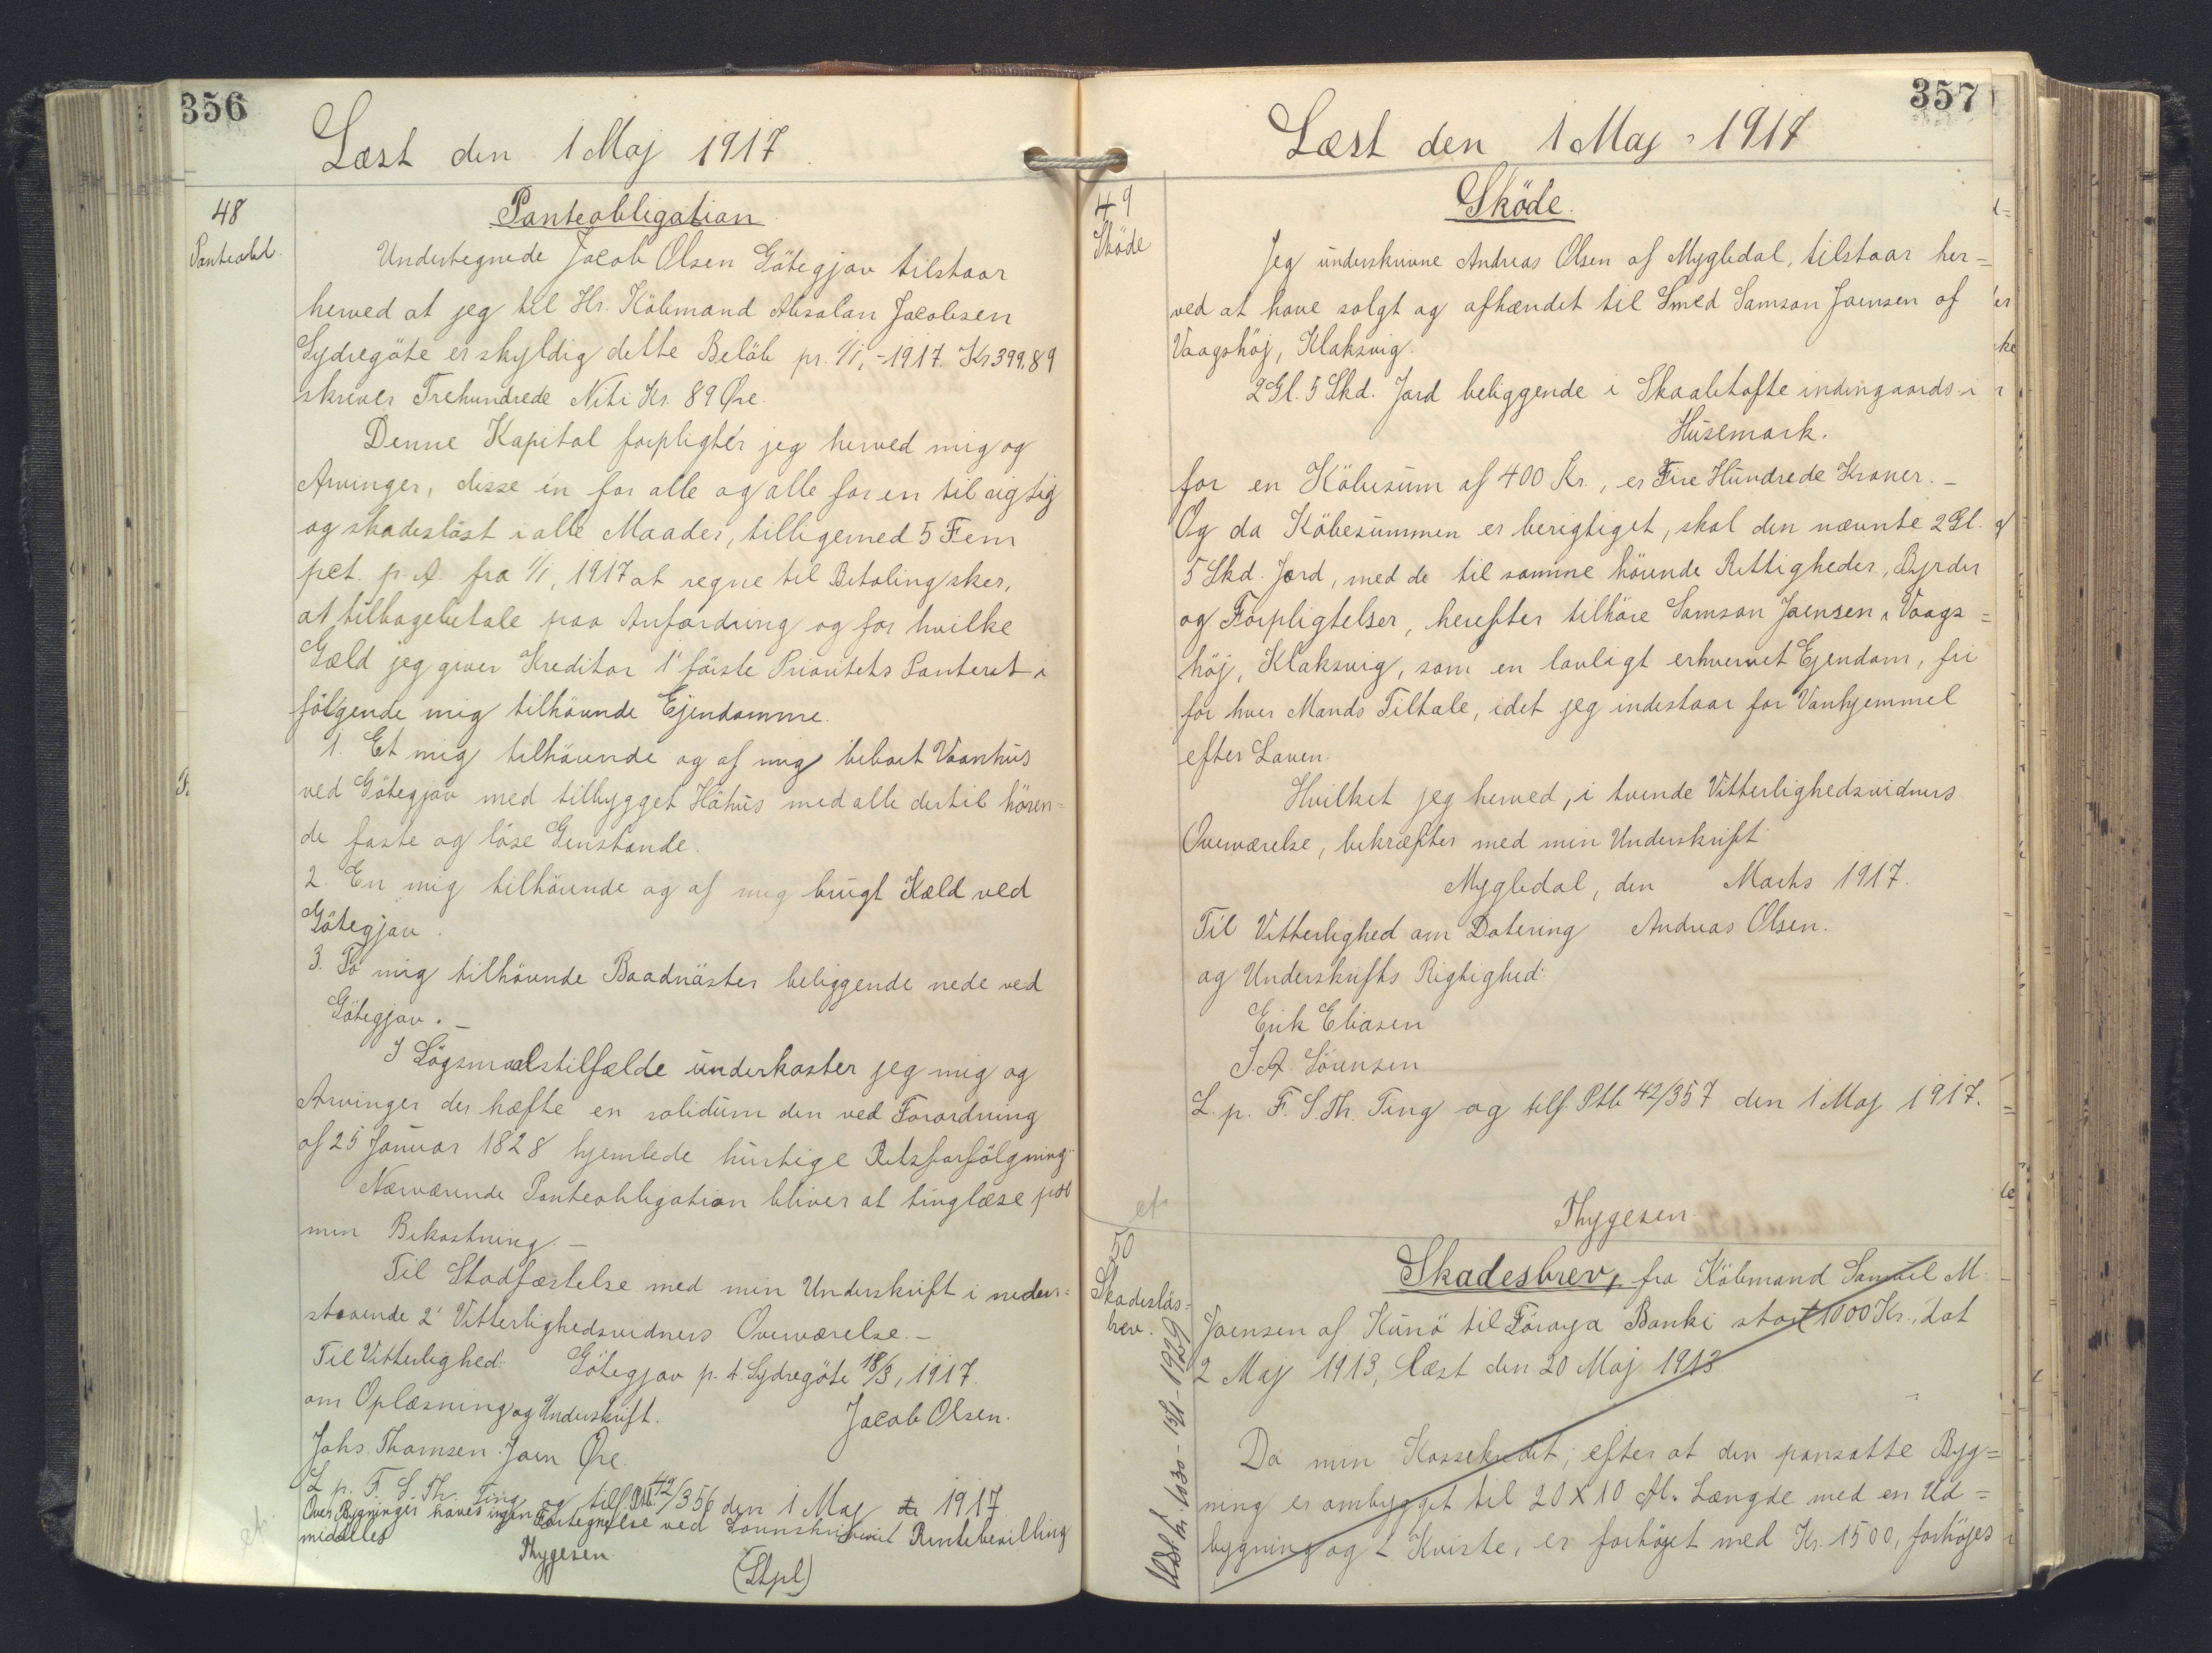 356
Læst den 1 Maj 1917.
48
Panteobl.
Panteobligation
Undertegnede Jacob Olsen Götegjov tilstaar
herved at jeg til Hr. Köbmand Absalon Jacobsen
Sydregöte er skyldig dette Belöb pr. 1/1,-1917. Kr 399,89
skriver Trehundrede Niti Kr. 89 Øre.
Denne Kapital forpligter jeg herved mig og
Arvinger, disse én for alle og alle for en til rigtig
og skadeslöst i alle Maader, tilligemed 5 Fem
pct. p. A. fra 1/1, 1917 at regne til Betaling sker,
at tilbagebetale paa Anfordring og for hvilke
Gæld jeg giver Kreditor 1' förste Prioritets Panteret i
fölgende mig tilhörende Ejendomme.
1. Et mig tilhörende og af mig beboet Vaanhus
ved Götegjov med tilbygget Höhus med alle dertil hören=
de faste og löse Genstande.
2. En mig tilhörende og af mig brugt Kæld ved
Götegjov.
3. To mig tilhörende Baadnäster beliggende nede ved
Götegjov. –
I Lögsmaalstilfælde underkaster jeg mig og
Arvinger der hæfte en solidum den ved Forordning
af 25 Januar 1828 hjemlede hurtige Retsforfölgning.
Nærværende Panteobligation bliver at tinglæse paa
min Bekostning. –
Til Stadfæstelse med min Underskrift i neden=
staaende 2' Vitterlighedsvidners Overværelse. –
Til Vitterlighed: Götegjov p. t. Sydregöte 18/3, 1917.
om Oplæsning og Underskrift. Jacob Olsen.
Johs. Thomsen. Joen Øre.
L. p. F. S. Th. Ting og tilf. Ptb 42/356 den 1 Maj 1917
Over Bygninger haves ingen Fortegnelse ved Sorenskriveriet Rentebevilling
middeles
Thygesen
(Stpl)
357
Læst den 1 Maj 1917
49
Sköde
Sköde.
Jeg underskrivne Andreas Olsen af Mygledal, tilstaar her=
ved at have solgt og afhændet til Smed Samson Joensen af
Vaagshöj, Klaksvig.
2 Gl. 5 Skd. Jord beliggende i Skaaletofte indengaards i
Husemark.
for en Köbesum af 400 Kr., er Fire Hundrede Kroner. –
Og da Köbesummen er berigtiget, skal den nævnte 2 Gl.
5 Skd. Jord, med de til samme hörende Rettigheder, Byrder
og Forpligtelser, herefter tilhöre Samson Joensen i Vaags=
höj, Klaksvig, som en lovligt erhvervet Ejendom, fri
for hver Mands Tiltale, idet jeg indestaar for Vanhjemmel
efter Loven.
Hvilket jeg herved, i tvende Vitterlighedsvidners
Overværelse, bekræfter med min Underskrift
Mygledal, den Marts 1917.
Til Vitterlighed om Datering Andreas Olsen.
og Underskrifts Rigtighed:
Erik Eliasen
J. A. Sörensen
L. p. F. S. Th. Ting og tilf. Ptb 42/357 den 1 Maj 1917.
Thygesen.
50
Skadeslös=
brev.
Skadesbrev, fra Köbmand Samuel M.
Joensen af Kunö til Föroya Banki stort 1000 Kr., dat
2 Maj 1913, læst den 20 Maj 1913
Da min Kassekredit; efter at den pansatte Byg=
ning er ombygget til 20 X 10 Al. Længde med en Ud=
bygning og 2 Kviste, er forhöjet med Kr. 1500, forhöjes